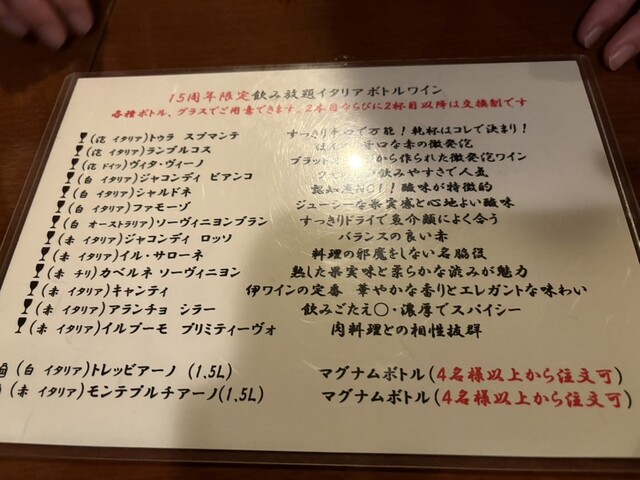 15周年限定飲み放題イタリアボトルワイン
各種ボトル、グラスでご用意できます。2本目ならびに2杯目以降は交換制です
(泡 イタリア)トゥラ スプマンテ すっきり辛口で万能！乾杯はコレで決まり！
(泡 イタリア)ランブルコス 甘口な赤の微発泡
(泡 ドイツ)ヴィタ・ヴィーノ ブラッド から作られた微発泡ワイン
(白 イタリア)ジャコンディ ビアンコ 飲みやすさで人気
(白 イタリア)シャルドネ 認知度NO1！酸味が特徴的
(白 イタリア)ファモーゾ ジューシーな果実感と心地よい酸味
(白 オーストラリア)ソーヴィニヨンブラン すっきりドライで魚介類によく合う
(赤 イタリア)ジャコンディ ロッソ バランスの良い赤
(赤 イタリア)イル・サローネ 料理の邪魔をしない名脇役
(赤 チリ)カベルネ ソーヴィニヨン 熟した果実味と柔らかな渋みが魅力
(赤 イタリア)キャンティ 伊ワインの定番 華やかな香りとエレガントな味わい
(赤 イタリア)アランチョ シラー 飲みごたえ〇・濃厚でスパイシー
(赤 イタリア)イルプーモ プリミティーヴォ 肉料理との相性抜群
(白 イタリア)トレッビアーノ (1.5L) マグナムボトル(4名様以上から注文可)
(赤 イタリア)モンテプルチアーノ(1.5L) マグナムボトル(4名様以上から注文可)